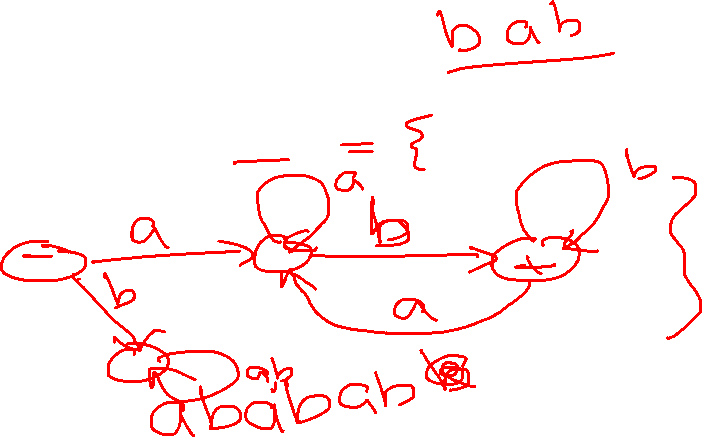 bab
= {
a
b }
a b
- +
b a
a,b
ababab